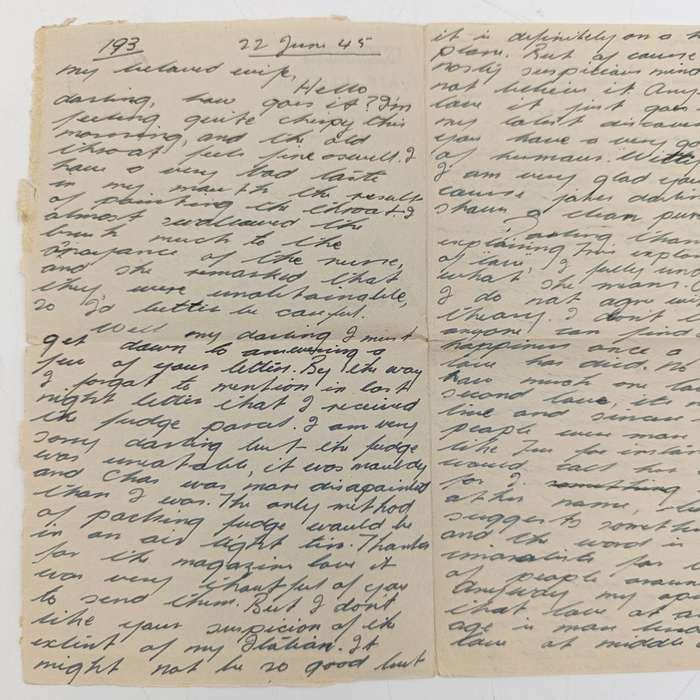 193 22 June 45
My beloved wife,
Hello
darling, how goes it? I'm
feeling quite chirpy this
morning, and the old
throat feels fine as well. I
have a very bad taste
in my mouth the result
of painting the throat. I
almost swallowed the
brush much to the
annoyance of the nurse,
and she remarked that
they were unobtainable,
so I'd better be careful.
Well my darling I must
get down to answering a
few of your letters. By the way
I forgot to mention in last
night letter that I received
the fudge parcel. I am very
sorry darling but the fudge
was uneatable, it was mouldy
and Chas was more disapointed
than I was. The only method
of packing fudge would be
in an air tight tin. Thanks
for the magazine love it
was very thoughtful of you
to send them. But I dont
like your suspicion of the
extent of my Italian. It
might not be so good but
it is definitely on a
plane. But of course
nasty suspicious mind
not believe it. Any
love it just goes
my latest discover
you have a very go
of humour.
I am very glad you
course jokes darl
shown a clean pu
acting than
explaining this explan
of love, I fully und
what she means.
I do not agree w
theory. I dont
anyone can find
happiness once a
love has died. No
how much one lo
second love, its
line and sincer
people were man
like Inr for instan
would call his
for I something
other name,
suggests someth
and the word is
for
of people aroun
Anyway my opi
that love at a
age is more
love at middle